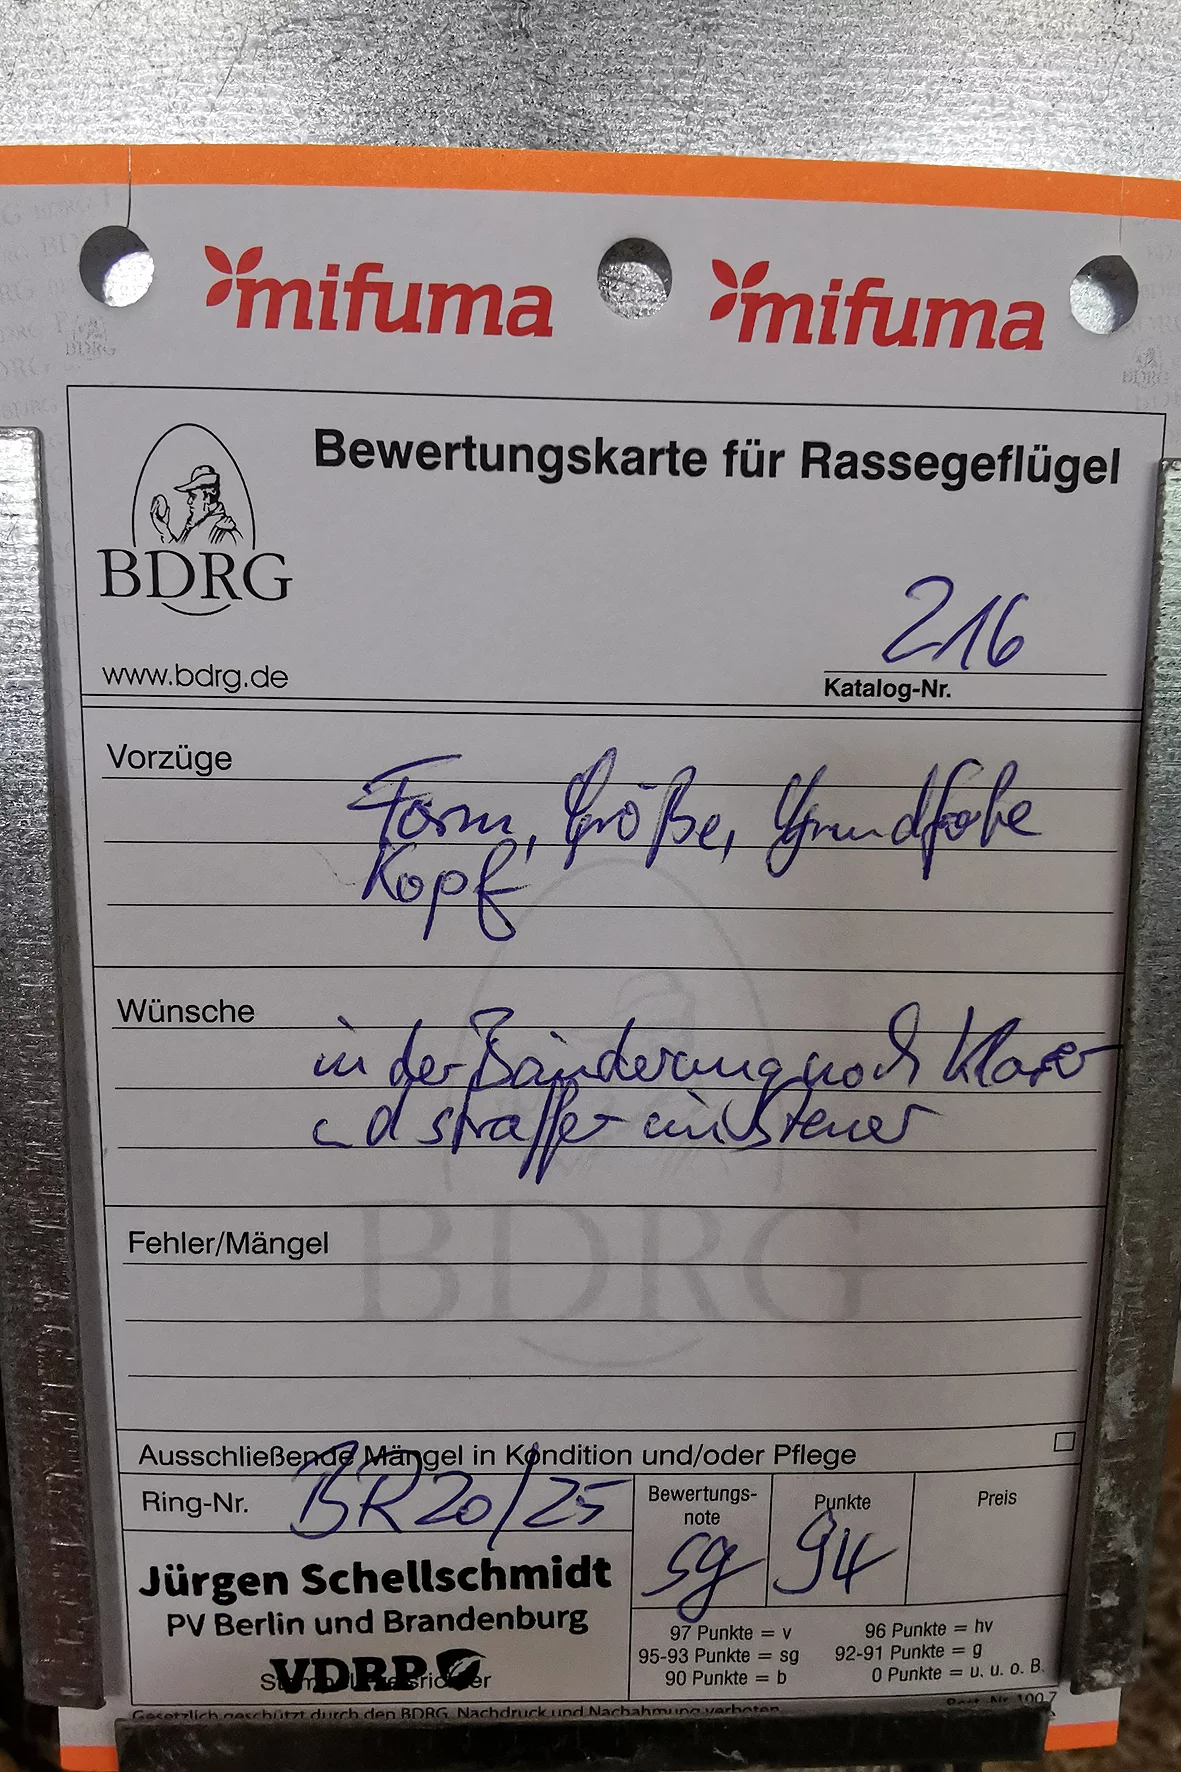 mifuma mifuma
Bewertungskarte für Rassegeflügel
BDRG
www.bdrg.de
216
Katalog-Nr.
Vorzüge
Form, Größe, Grundfarbe
Kopf
Wünsche
in der Bänderung noch klarer
und straffer
Fehler/Mängel
BDRG
Ausschließende Mängel in Kondition und/oder Pflege
Ring-Nr. BR20/25
Bewertungs-
note
sg
Punkte
94
Preis
Jürgen Schellschmidt
PV Berlin und Brandenburg
VDRP
97 Punkte = v 96 Punkte = hv
95-93 Punkte = sg 92-91 Punkte = g
90 Punkte = b 0 Punkte = u. u. o. B.
Gesetzlich geschützt durch den BDRG. Nachdruck und Nachahmung verboten.